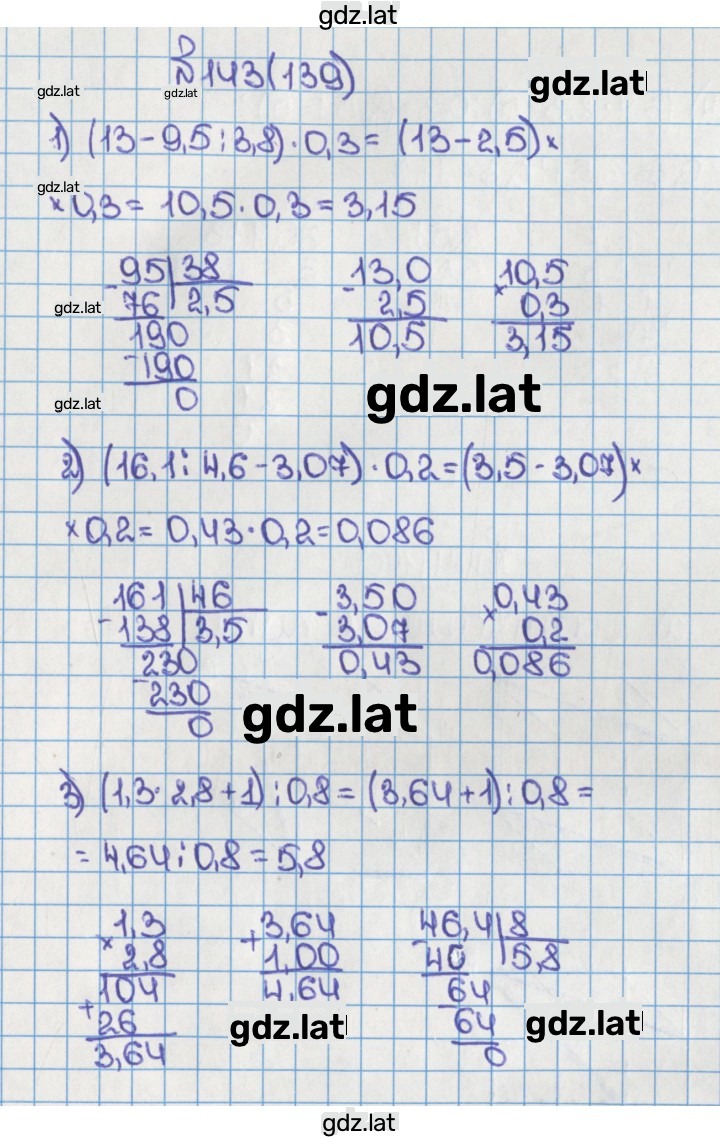 gdz.lat
№143(139)
gdz.lat
gdz.lat
gdz.lat
1) (13-9,5:3,8)·0,3= (13-2,5)×
gdz.lat
×0,3= 10,5·0,3=3,15
95|38
-76 |2,5
190
-190
0
gdz.lat
gdz.lat
13,0
- 2,5
10,5
10,5
× 0,3
3,15
gdz.lat
2) (16,1:4,6-3,07)·0,2=(3,5-3,07)×
×0,2= 0,43·0,2=0,086
161|46
-138|3,5
230
-230
0
3,50
-3,07
0,43
0,43
× 0,2
0,086
gdz.lat
3) (1,3·2,8+1):0,8= (3,64+1):0,8=
= 4,64:0,8=5,8
1,3
×2,8
104
+26
3,64
3,64
+1,00
4,64
46,4|8
-40 |5,8
64
-64
0
gdz.lat
gdz.lat
gdz.lat